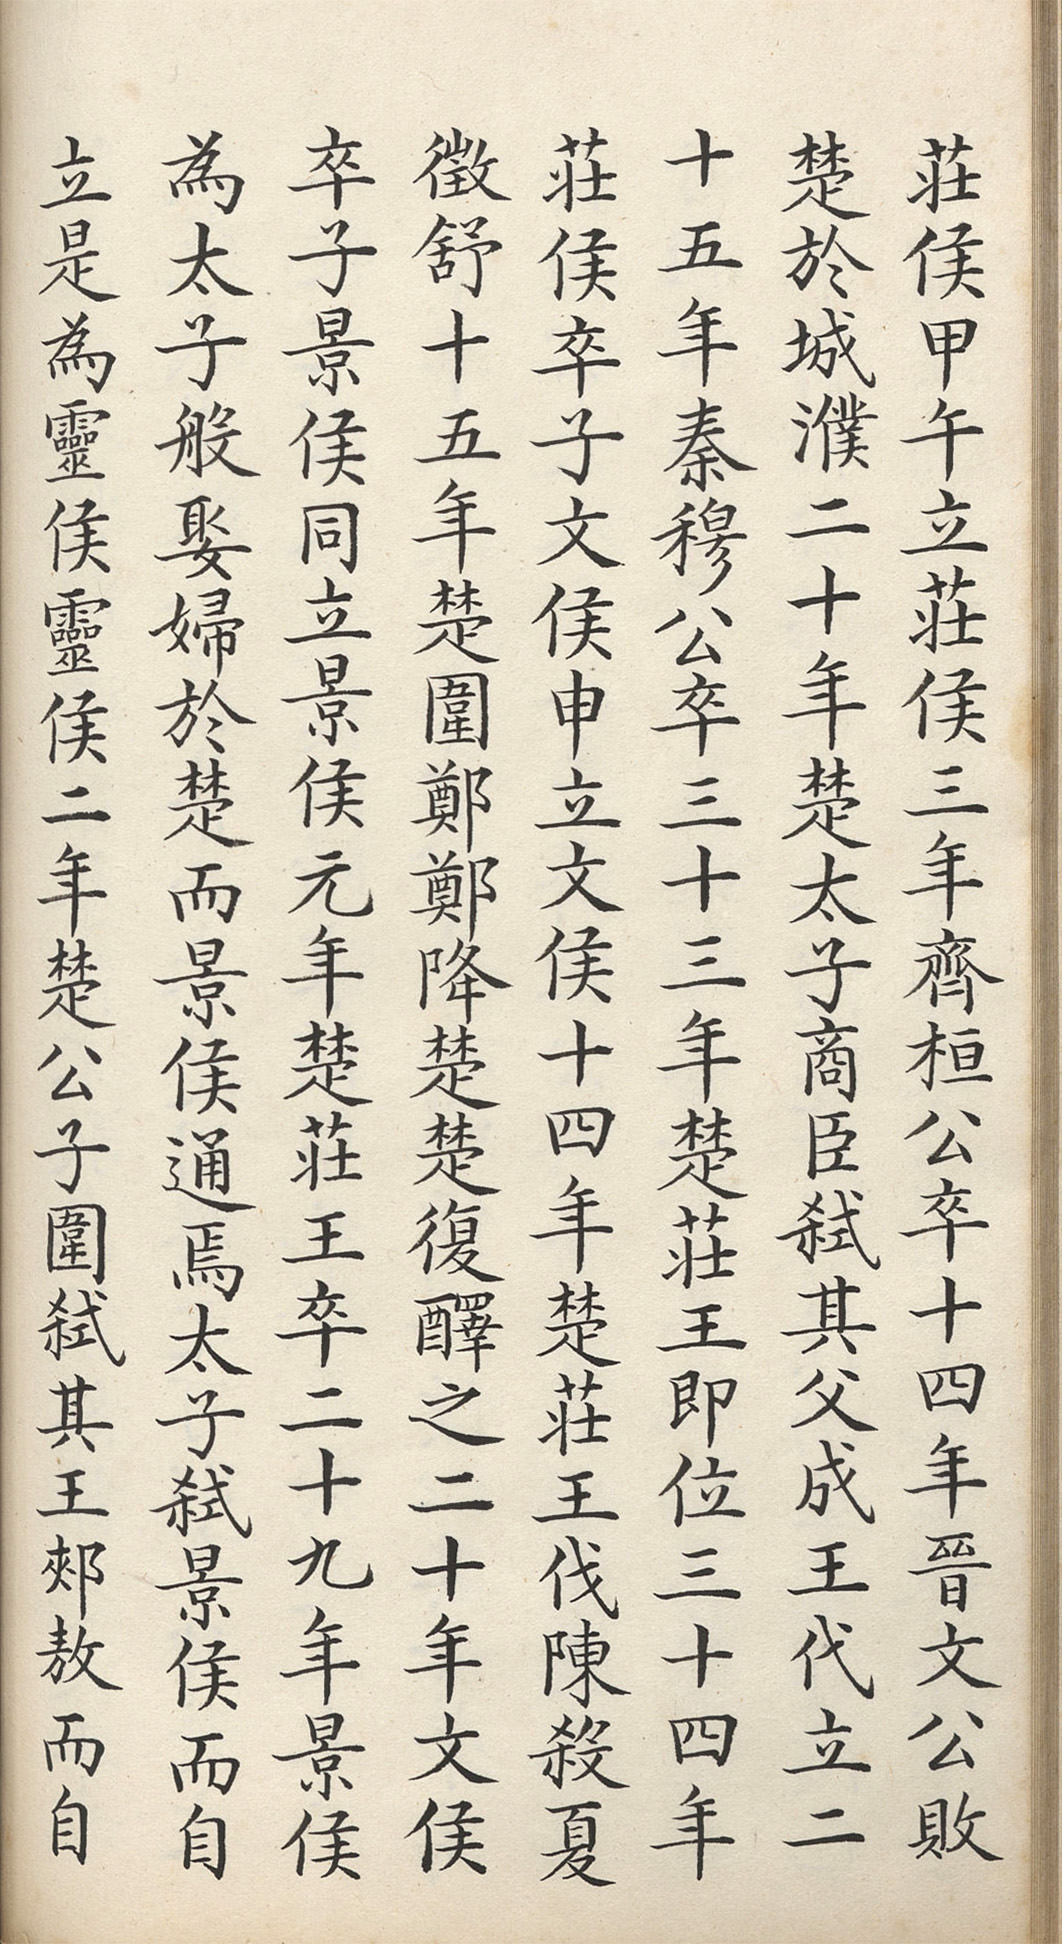 莊侯甲午立莊侯三年齊桓公卒十四年晉文公敗
楚於城濮二十年楚太子商臣弒其父成王代立二
十五年秦穆公卒三十三年楚莊王即位三十四年
莊侯卒子文侯申立文侯十四年楚莊王伐陳殺夏
徵舒十五年楚圍鄭鄭降楚楚復醳之二十年文侯
卒子景侯同立景侯元年楚莊王卒二十九年景侯
為太子般娶婦於楚而景侯通焉太子弒景侯而自
立是為靈侯靈侯二年楚公子圍弒其王郟敖而自